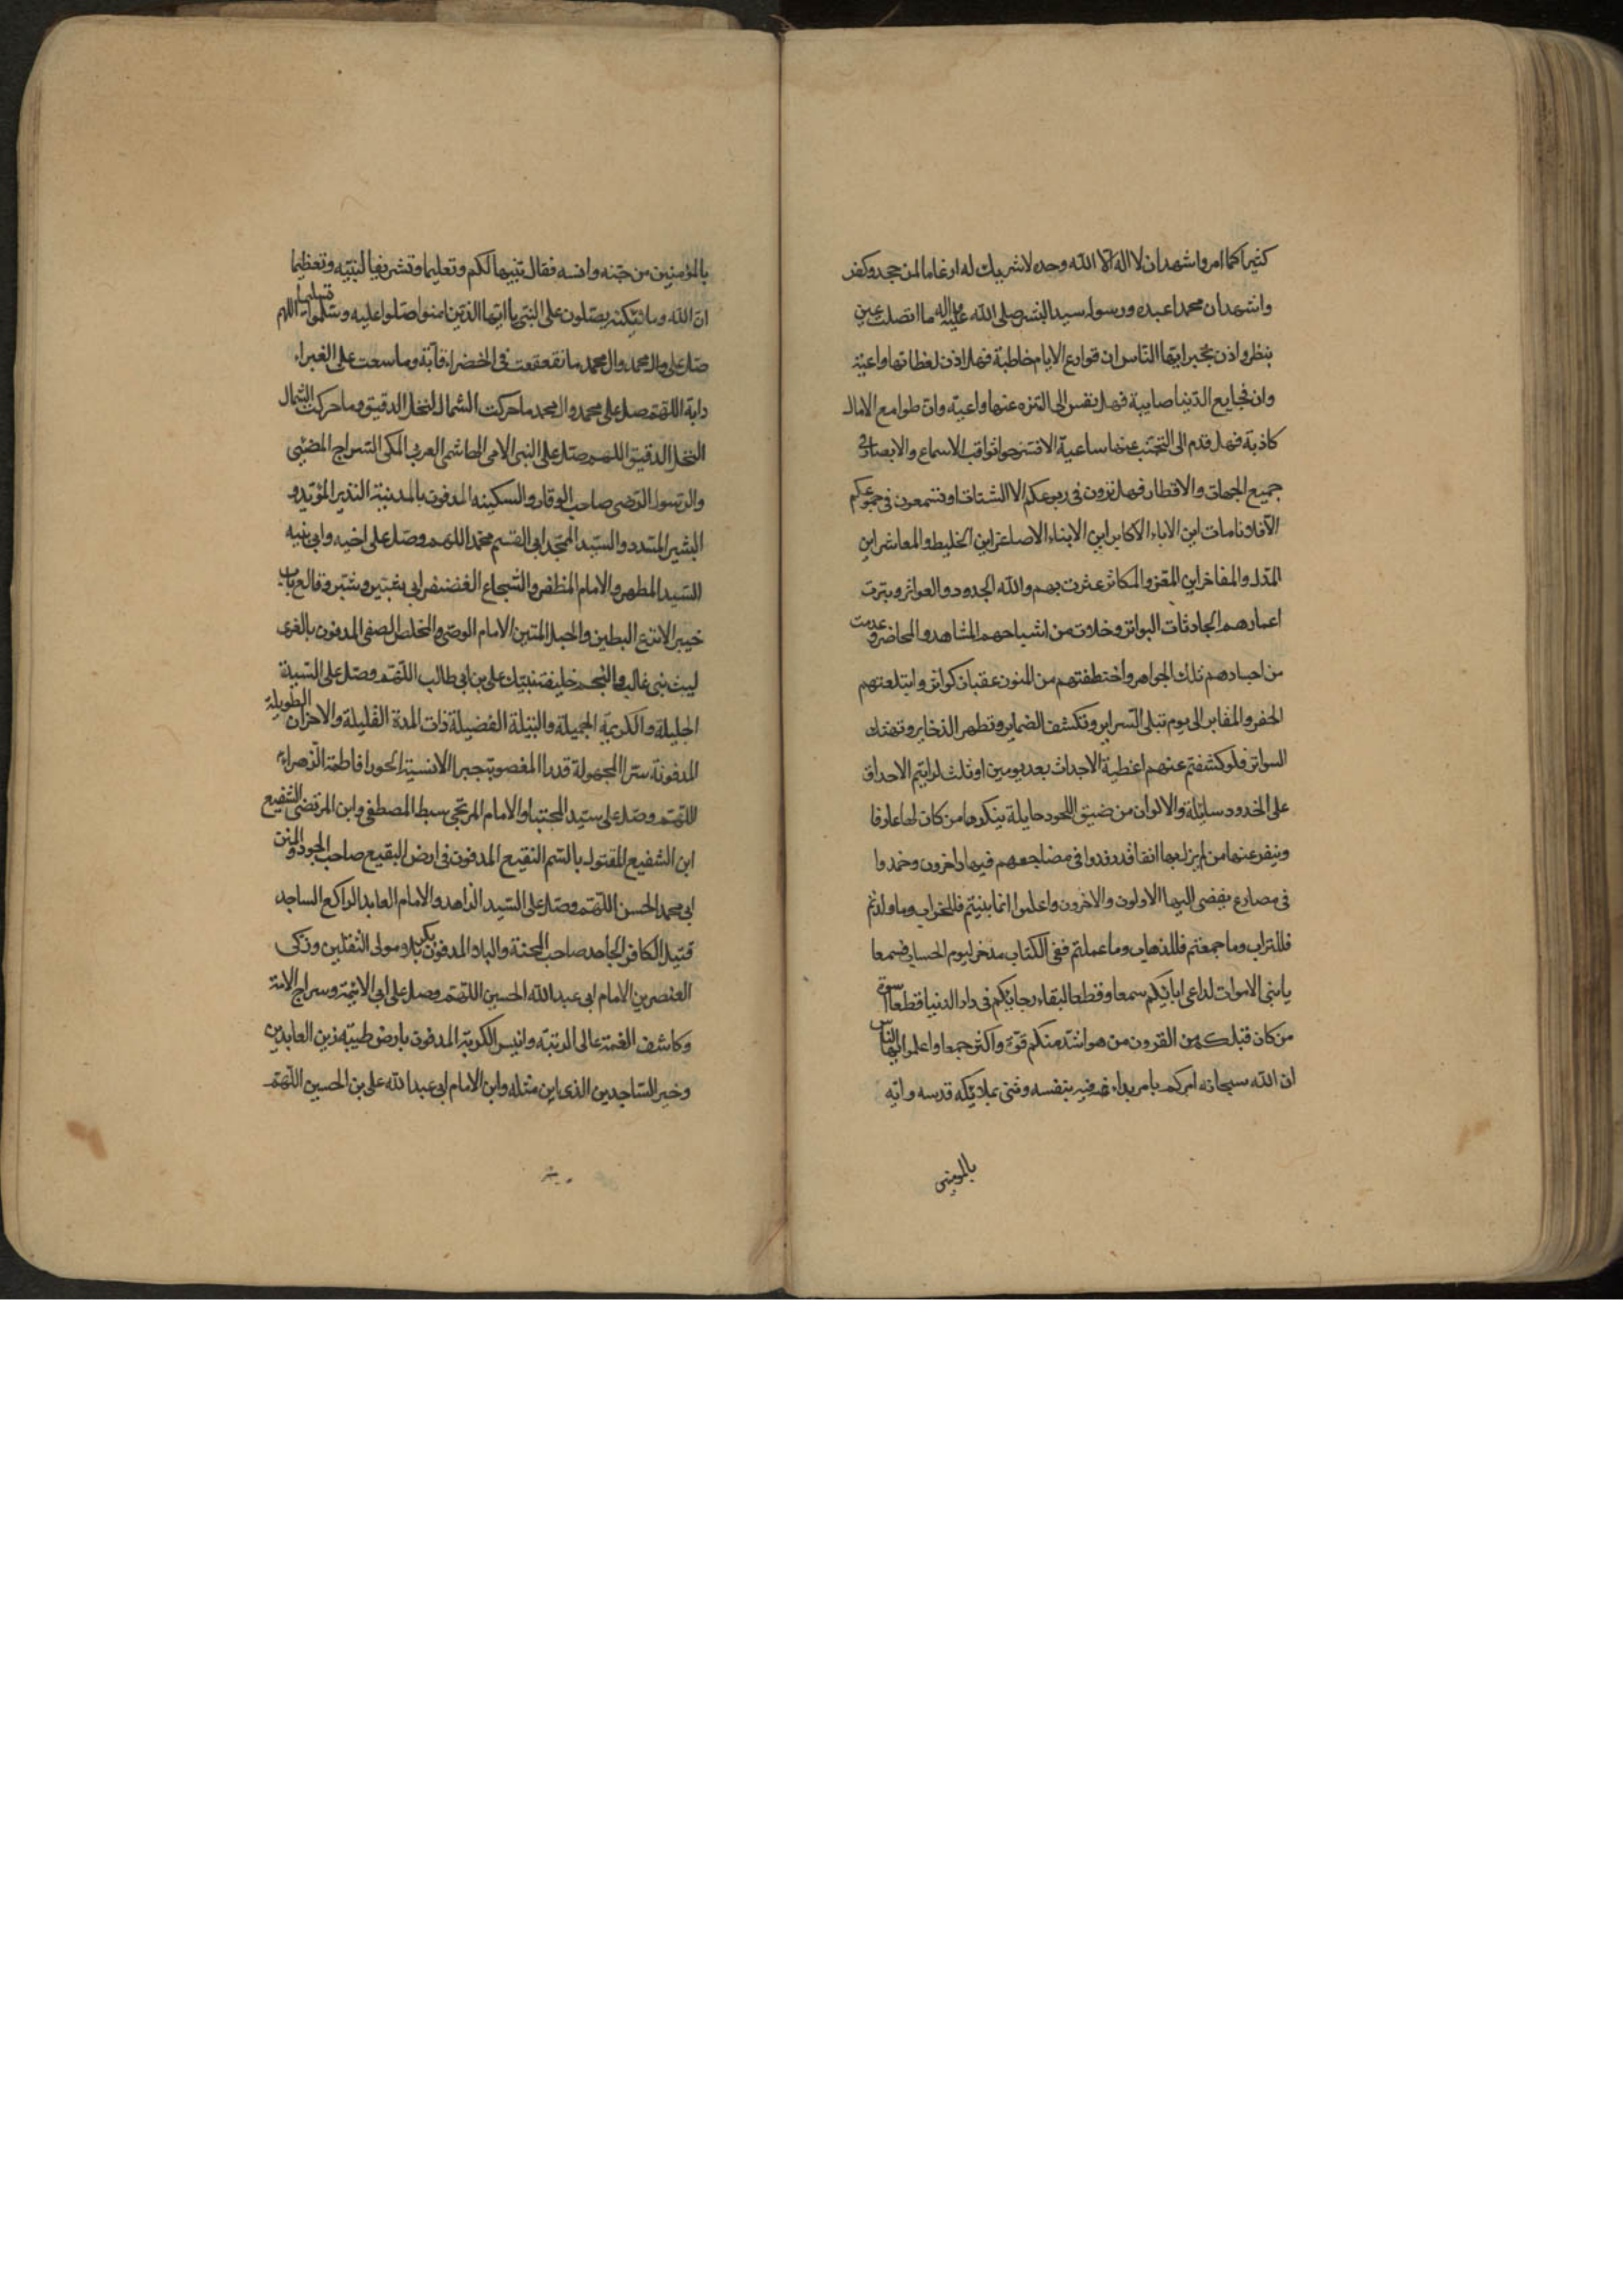 كثيرا كما امر واشهد ان لا اله الا الله وحده لا شريك له ارغاما لمن جحد وكفر
واشهد ان محمدا عبده ورسوله سيد البشر صلى الله عليه واله ما اتصلت عين
بنظر واذن بخبر ايها الناس ان قوارع الايام خاطبة فهل اذن لعظاتها واعية
وان فجايع الدنيا صايبة فهل نفس الى التنزه عنها واعية وان طوامع الامال
كاذبة فهل قدم الى التجنب عنها ساعية الا فتسرحوا ثواقب الاسماع والابصار في
جميع الجهات والاقطار فهل ترون في ربوعكم الا الشتات او تسمعون في جموعكم
الا فلانا مات اين الاباء الاكابر اين الابناء الاصاغر اين الخليط والمعاشر اين
المدل والمفاخر اين المقر والمكاثر عثرت بهم والله الجدود والعواثر وبترت
اعمارهم الحادثات البواتر وخلات من اشباحهم المشاهد والمحاضر وعدمت
من اجسادهم تلك الجواهر واختطفتهم من المنون عقبان كواتر وابتلعتهم
الحفر والمقابر الى يوم تبلى السراير وتكشف الضماير وتظهر الذخاير وتهتك
السواتر فلو كشفتم عنهم اغطية الاجداث بعد يومين او ثلث لرايتم الاحداق
على الخدود سايلة والالوان من ضيق اللحود حايلة ينكرها من كان لها عارفا
وينفر عنها من لم يزل بها انفا قد رقدوا في مضاجعهم فيها داخرون وخمدوا
في مصارع يفضى اليها الاولون والاخرون واعلموا انما بنيتم فللخراب وما ولدتم
فللتراب وما جمعتم فللذهاب وما عملتم ففي الكتاب مدخر ليوم الحساب فسمعا
يا بنى الاموات لداعى ابائكم سمعا وقطعا لبقاء رجائكم في دار الدنيا قطعا اسوة
من كان قبلكم من القرون من هو اشد منكم قوة واكثر جمعا واعلموا ايها الناس
ان الله سبحانه امركم بامر بداء فيه بنفسه وثنى بملائكة قدسه وايه
بالمومنين
بالمؤمنين من جنه وانسه فقال تنبيها لكم وتعليما وتشريفا لنبيه وتعظيما
ان الله وملائكته يصلون على النبي يا ايها الذين امنوا صلوا عليه وسلموا تسليما اللهم
صل على محمد وال محمد ما تقعقعت في الخضراء وما سعت على الغبراء
دابة اللهم صل على محمد وال محمد ما حركت الشمال النخل الدقيق وما حركت الشمال
النخل الدقيق اللهم صل على النبي الامى الهاشمى العربى المكى السراج المضيئ
والرسول الرضى صاحب الوقار والسكينه المدفون بالمدينة النذير المؤيد و
البشير المسدد والسيد الممجد ابى القسم محمد اللهم وصل على اخيه وابى بنيه
السيد المطهر والامام المظفر والشجاع الغضنفر ابى شبير وشبر وقالع باب
خيبر الانزع البطين والحبل المتين الامام الوصى والمخلص الصفى المدفون بالغرى
ليث بنى غالب خليفة نبيك على بن ابى طالب اللهم وصل على السيدة
الجليلة والكريمة الجميلة والنبيلة الفضيلة ذات المدة القليلة والاحزان الطويلة
المدفونة سترا المجهولة قدرا المغصوبة جبرا الانسية الحورا فاطمة الزهراء
اللهم وصل على سيد المجتبا والامام المرتجى سبط المصطفى وابن المرتضى الشفيع
ابن الشفيع المقتول بالسم النقيع المدفون في ارض البقيع صاحب الجود والمنن
ابى محمد الحسن اللهم وصل على السيد الزاهد والامام العابد الراكع الساجد
قتيل الكافر الجاحد صاحب المحنة والبلاء المدفون بكربلا ومولى الثقلين وزكى
العنصرين الامام ابى عبد الله الحسين اللهم وصل على ابى الائمة وسراج الامة
وكاشف الغمة عالى الرتبه وانيس الكربة المدفون بارض طيبة زين العابدين
وخير الساجدين الذى اين مثله وابن الامام ابى عبد الله على بن الحسين اللهم